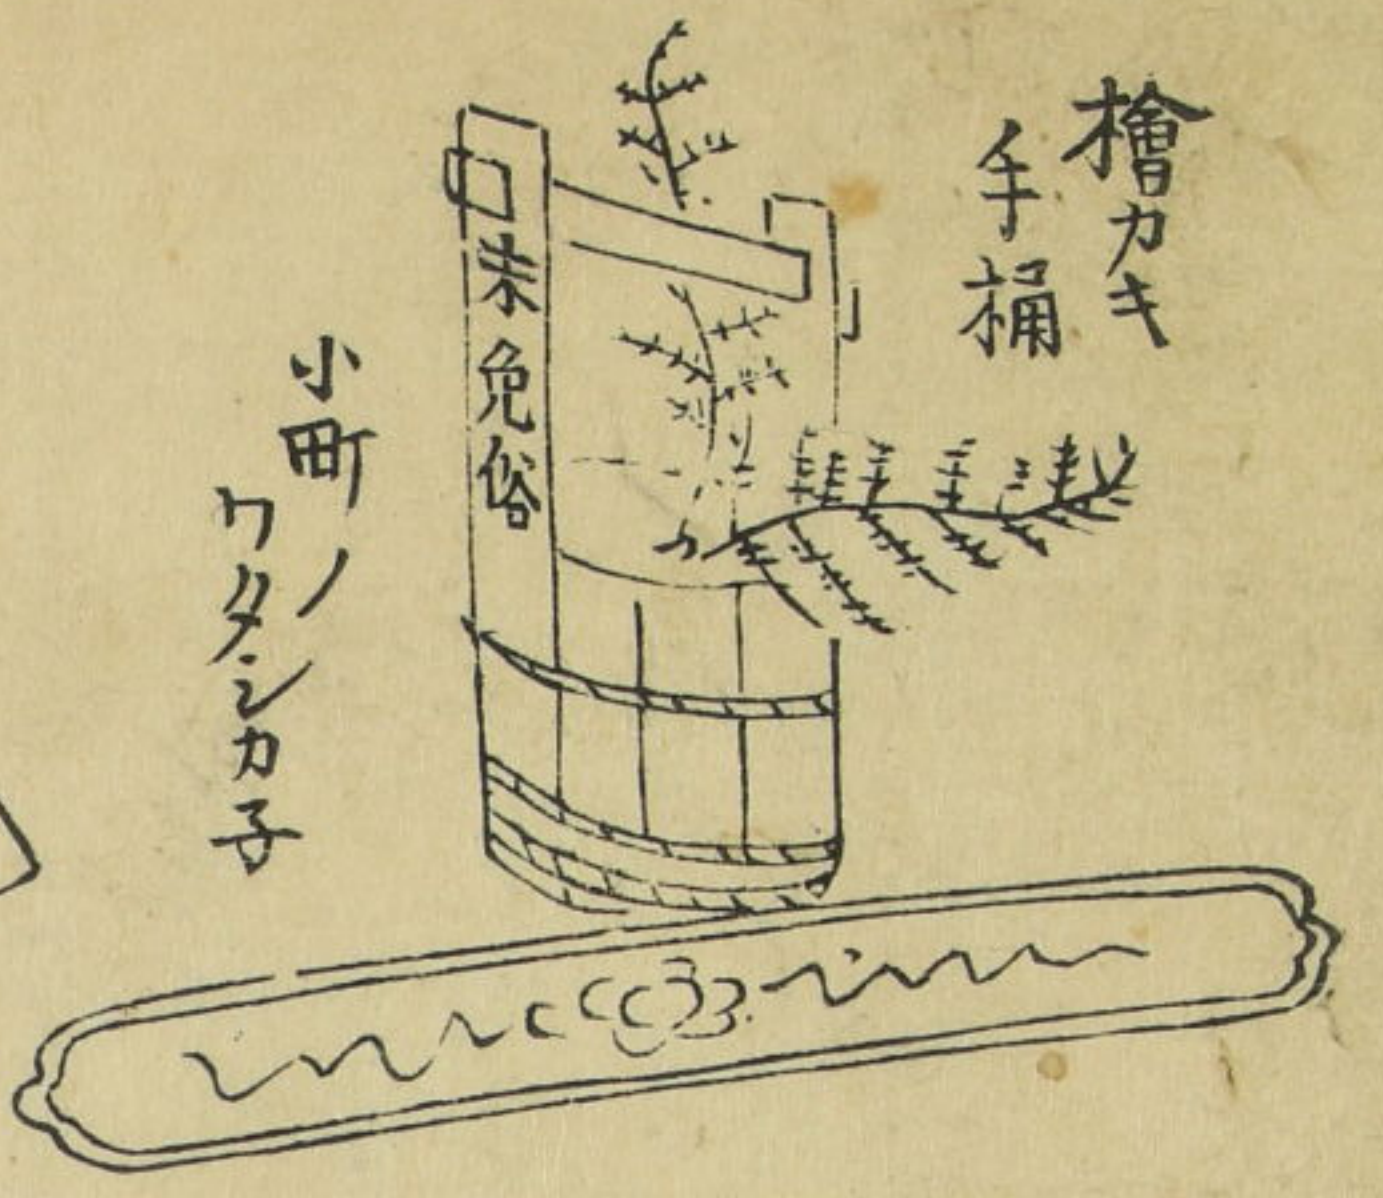 檜カキ
手桶
未免俗
小町ノ
ワタシカ子